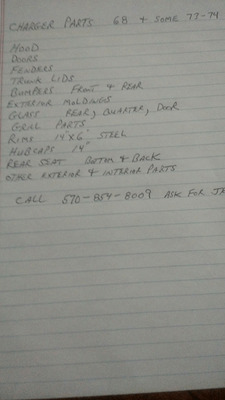 CHARGER PARTS 68 & SOME 72-74
HOOD
DOORS
FENDERS
TRUNK LIDS
BUMPERS FRONT & REAR
EXTERIOR MOLDINGS
GLASS REAR, QUARTER, DOOR
GRILL PARTS
RIMS 14"X6" STEEL
HUBCAPS 14"
REAR SEAT BOTTOM & BACK
OTHER EXTERIOR & INTERIOR PARTS
CALL 570-854-8009 ASK FOR